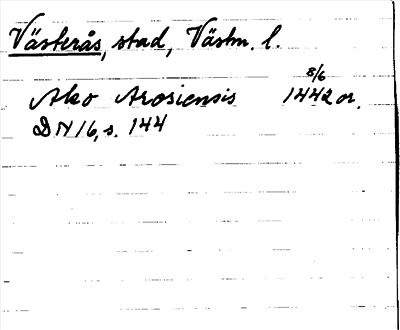 Västerås, stad, Västm. l.
Ako Arosiensis 8/6 1442 or.
DN 16, s. 144